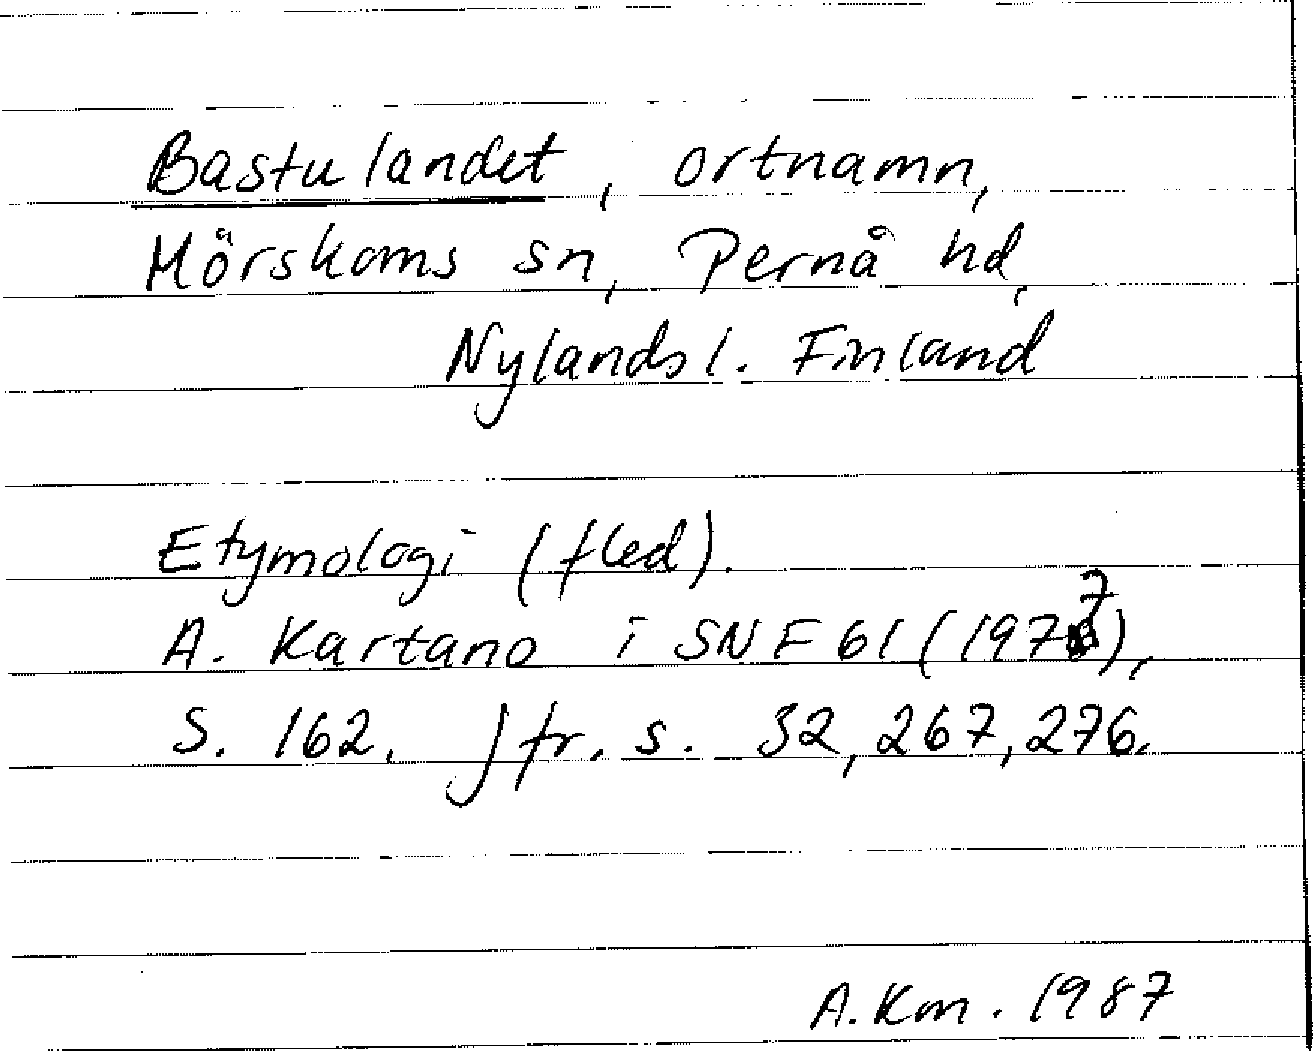 Bastulandet, ortnamn,
Mörskoms sn, Pernå hd,
Nylands l. Finland
Etymologi (fled).
A. Kartano i SNF 61 (1977),
S. 162. Jfr. s. 32, 267, 276.
A. Km. 1987